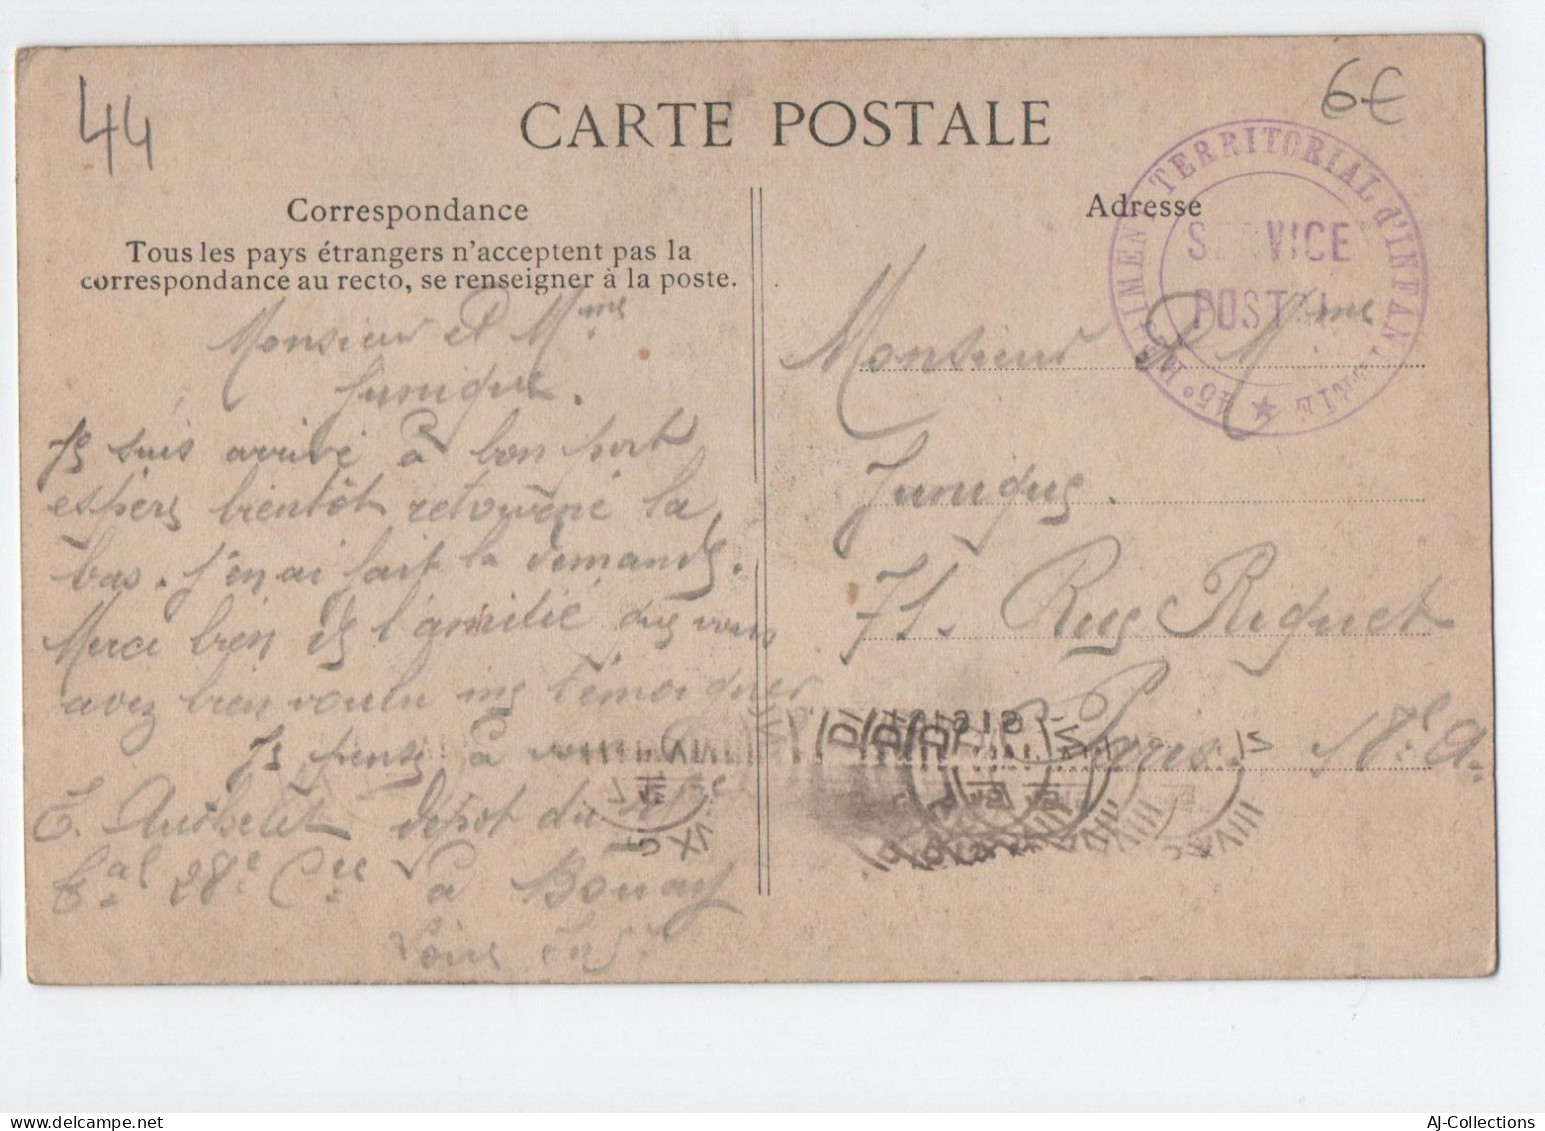 44
6€
CARTE POSTALE
Correspondance
Tous les pays étrangers n'acceptent pas la
correspondance au recto, se renseigner à la poste.
Monsieur et Mme
Junique.
Je suis arrivé à bon port
espère bientôt retourné la
bas. J'en ai fait la demande.
Merci bien de l'amitié que vous
avez bien voulu me témoigner
Je pense à vous
dépot du
Cal 28e Cie à
Loire Inf
Adresse
45e REGIMENT TERRITORIAL d'INFANTERIE
SERVICE
POSTAL
Monsieur & Mme
Junique.
71. Rue Riquet
Paris. 18e A.
AJ-Collections